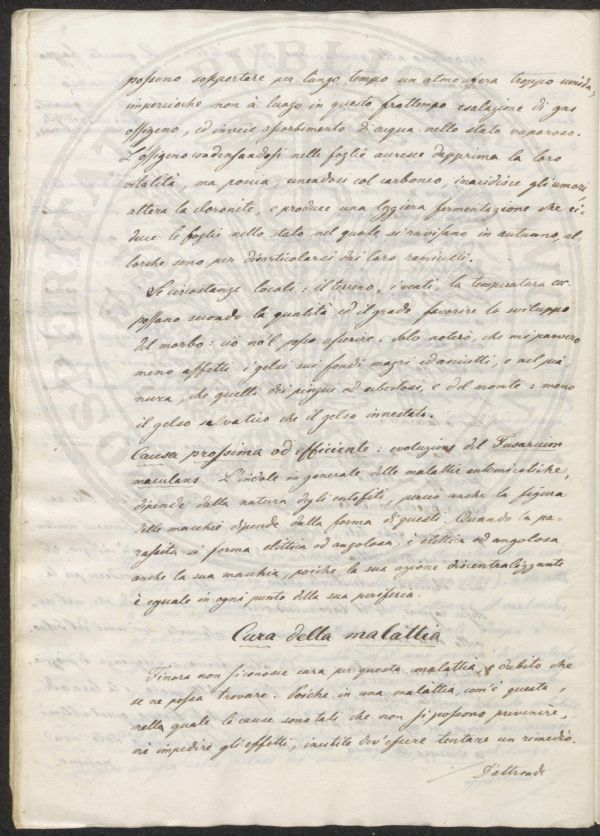 possono sopportare per lungo tempo un atmosfera troppo umida,
imperciochè non à luogo in questo frattempo esalazione di gas
ossigeno, ed invece assorbimento di acqua nello stato vaporoso.
L'ossigeno condensandosi nelle foglie accresce dapprima la loro
vitalità, ma poscia, unendosi col carbonio, inacidisce gli umori,
altera la cloronite, e produce una leggiera fermentazione che ri-
duce le foglie nello stato nel quale si ravvisano in autunno, al-
lorche sono per disarticolarsi dai loro ramicelli.
Se circostanze locali: il terreno, i venti, la temperatura ec
possano secondo la qualità ed il grado favorire lo sviluppo
del morbo: ciò no'l posso asserire. Solo noterò, che mi parvero
meno affetti i gelsi sui fondi magri ed asciutti, e nel pia-
nura, che quelli dei pingue ed erbosi, e del monte: meno
il gelso salvatico che il gelso innestato.
Causa prossima od efficiente: evoluzione del Fusarium
maculans. L'indole in generale delle malattie entomicetiche,
dipende dalla natura degli entofiti, perciò anche la figura
delle macchie dipende dalla forma di questi. Quando la pa-
rassita si forma elittica od angolosa, è elittica od angolosa
anche la sua macchia, poichè la sua azione discentralizzante
è eguale in ogni punto della sua periferia.
Cura della malattia
Finora non si conosce cura per questa malattia, e dubito che
se ne possa trovare. Poichè in una malattia, com'è questa,
nella quale le cause sono tali che non si possono prevenire,
nè impedire gli effetti, inutile dev'essere tentare un rimedio.
D'altronde